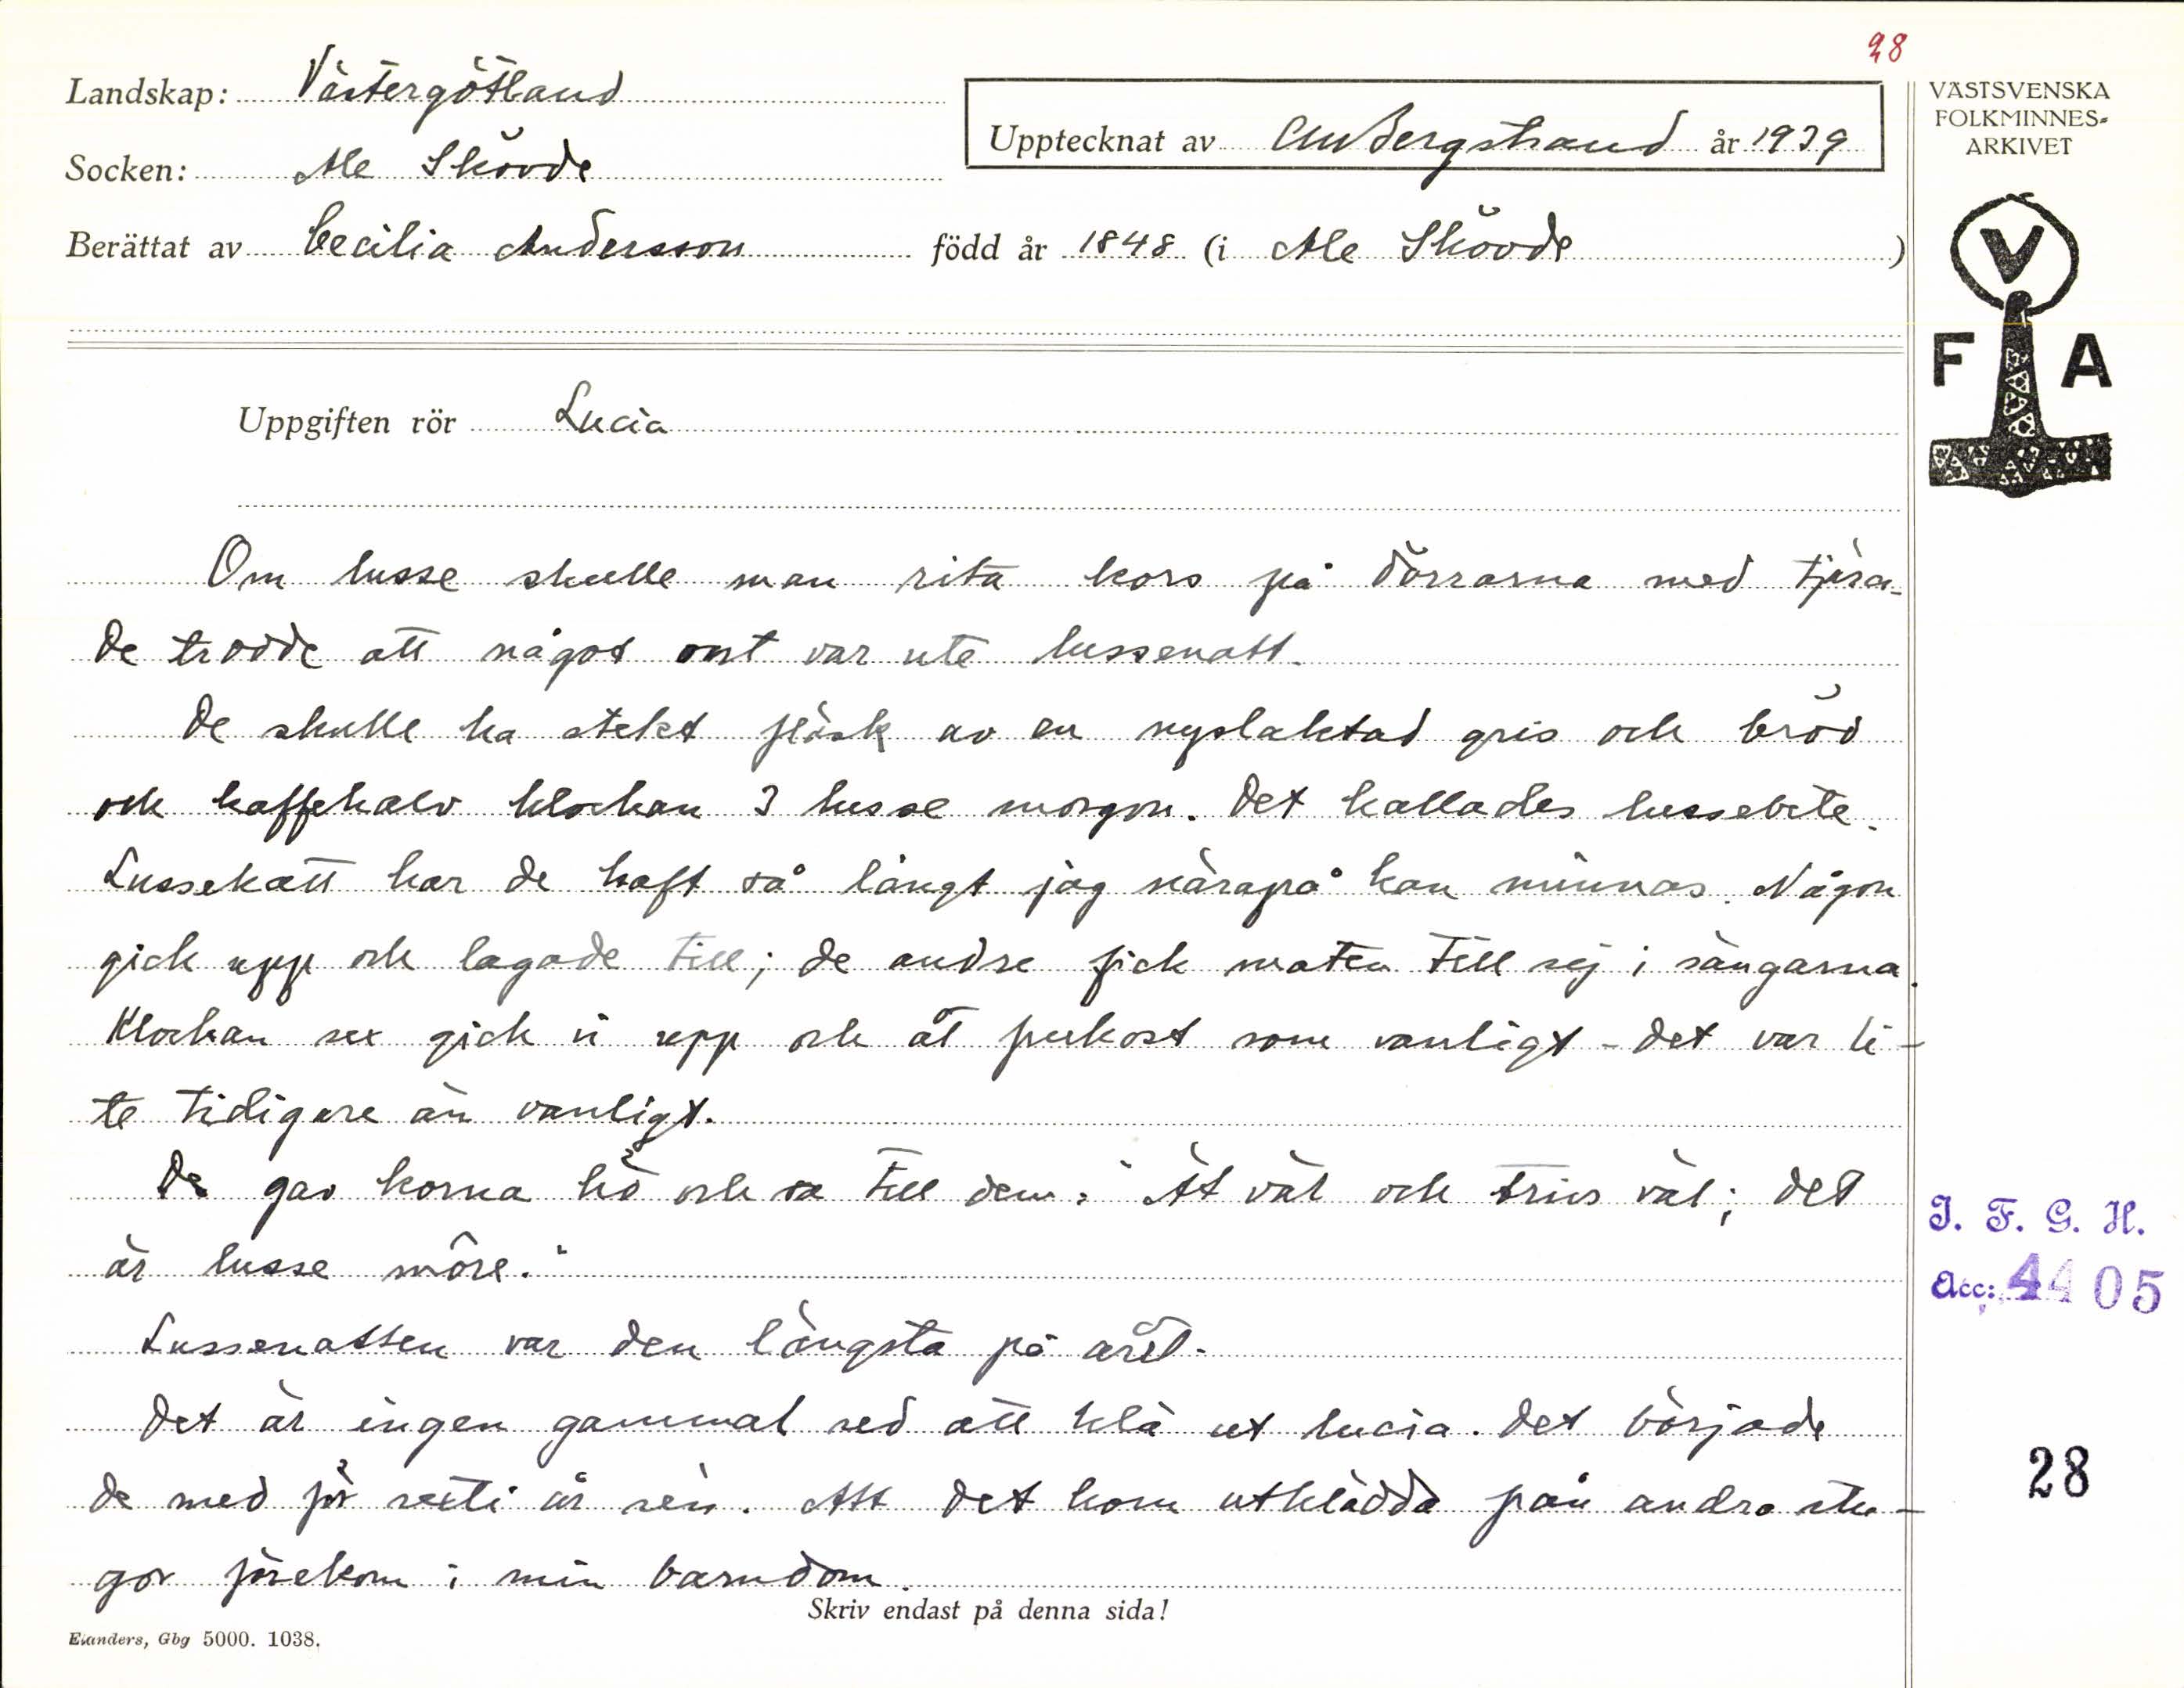 28
Landskap: Västergötland
Upptecknat av CM Bergstrand år 1939
Socken: Ale Skövde
Berättat av Cecilia Andersson född år 1848 (i Ale Skövde )
VÄSTSVENSKA
FOLKMINNES=
ARKIVET
V
F A
Uppgiften rör Lucia
Om lusse skulle man rita kors på dörrarna med tjära.
De trodde att något ont var ute lussenatt.
De skulle ha stekt fläsk av en nyslaktad gris och bröd
och kaffehalv klockan 3 lusse morgon. Det kallades lussebete.
Lussekatt har de haft så långt jag närapå kan minnas. Någon
gick upp och lagade till; de andre fick maten till sej i sängarna.
Klockan sex gick vi upp och åt frukost som vanligt - det var li-
te tidigare än vanligt.
De gav korna hö och sa till dem: "Ät väl och trivs väl; det
är lusse môre."
Lussenatten var den längsta på året.
Det är ingen gammal sed att klä ut lucia. Det började
de med för sexti år sen. Att det kom utklädda från andra stu-
gor förekom i min barndom.
Skriv endast på denna sida!
Elanders, Gbg 5000. 1038.
I. F. G. H.
Acc: 4405
28